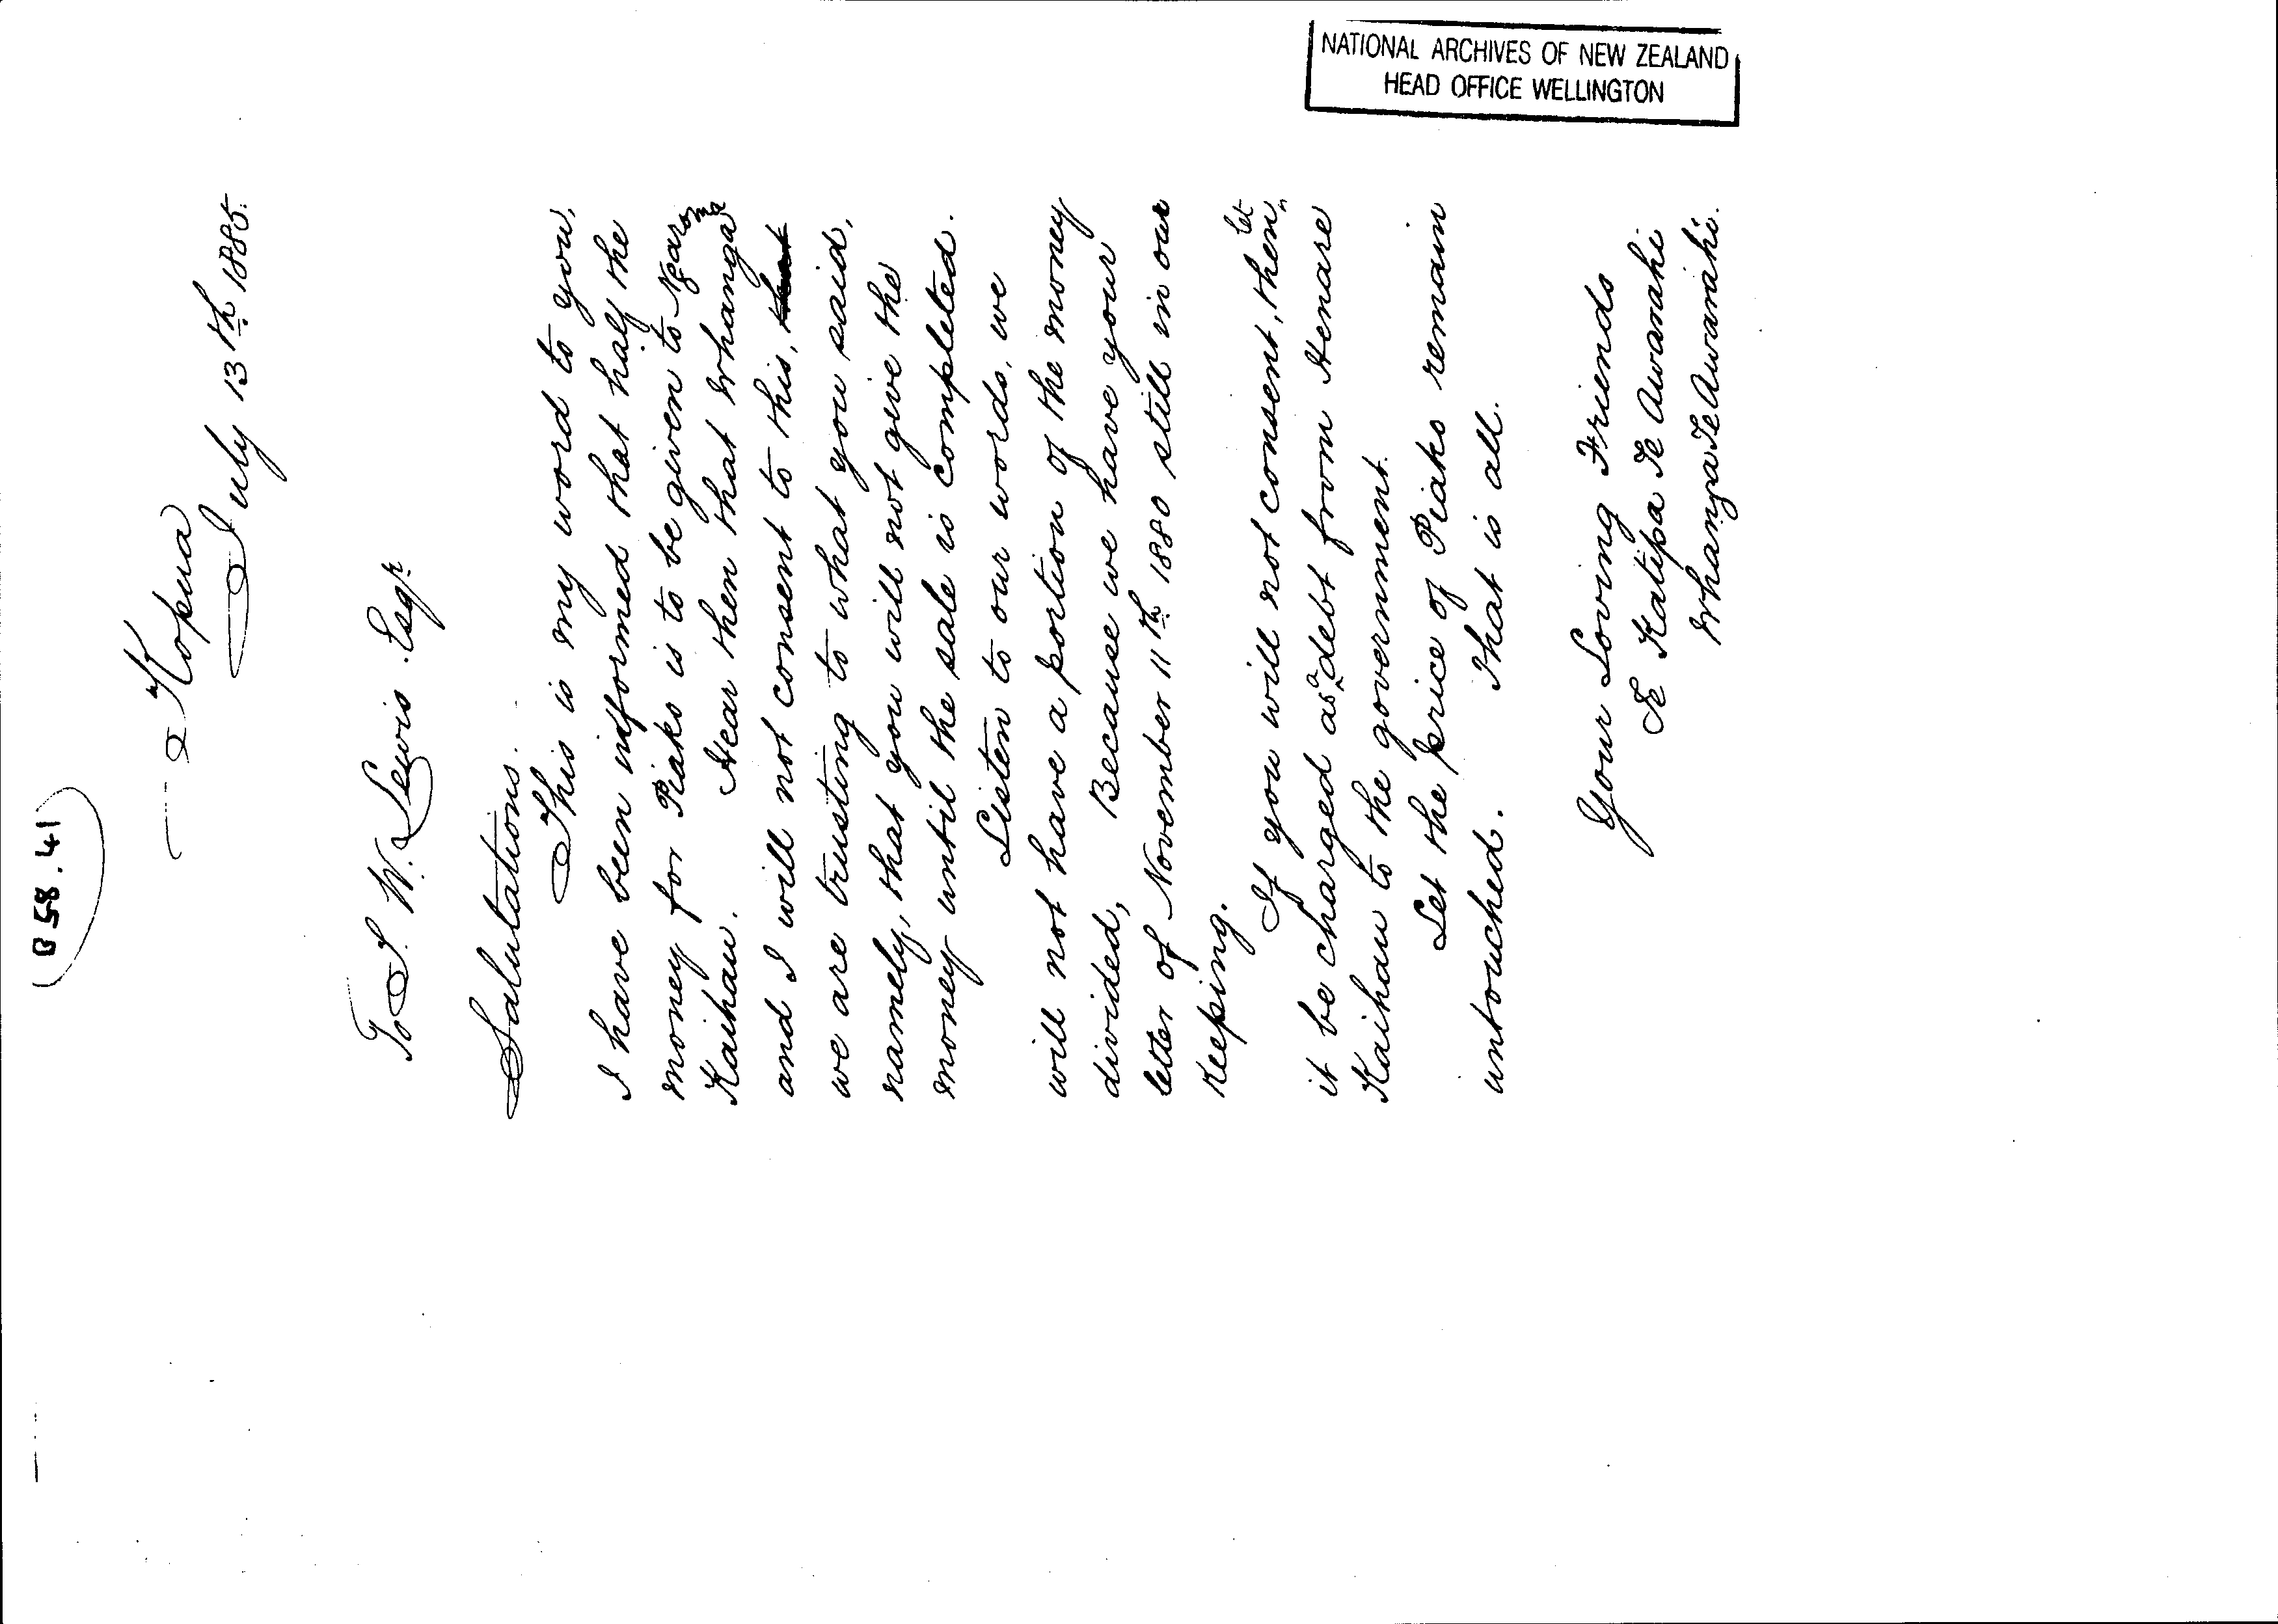 (B58.41
NATIONAL ARCHIVES OF NEW ZEALAND
HEAD OFFICE WELLINGTON
Kopua
July 13th 1885.
To S. W. Lewis. Esqr
Salutations.
This is my word to you,
I have been informed that half the
money for Piako is to be given to
Kaihau. Hear then that Whanga
and I will not consent to this,
we are trusting to what you said,
namely, that you will not give the
money until the sale is completed.
Listen to our words, we
will not have a portion of the money
divided, Because we have your
letter of November 11th 1880 still in our
keeping.
If you will not consent, then let
it be charged as a debt from Henare
Kaihau to the government.
Let the price of Piako remain
untouched. That is all.
Your Loving Friends
Te Katipa Te Awaraki
Whanga Te Awarahi.